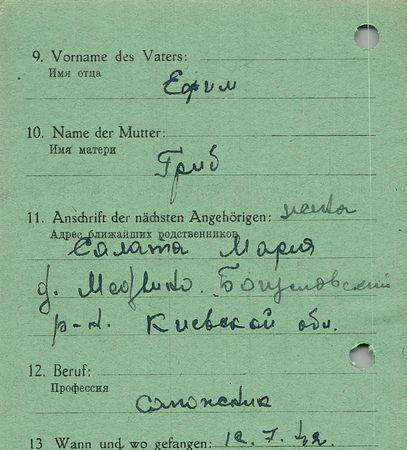 9. Vorname des Vaters:
Имя отца
Ефим
10. Name der Mutter:
Имя матери
Гриб
11. Anschrift der nächsten Angehörigen: жена
Адрес ближайших родственников
Салата Мария
д.
р-н. Киевской обл.
12. Beruf:
Профессия
сапожник
13 Wann und wo gefangen: 12.7.42.